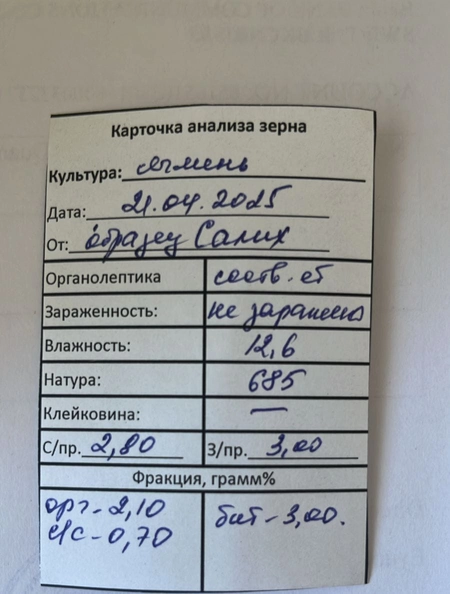 Карточка анализа зерна
Культура: Ячмень
Дата: 21.04.2025
От: образец Салих
Органолептика соотв-ет
Зараженность: не заражено
Влажность: 12,6
Натура: 685
Клейковина: —
С/пр. 2,80 З/пр. 3,00
Фракция, грамм%
орг-2,10 бит-3,00.
с/с-0,70